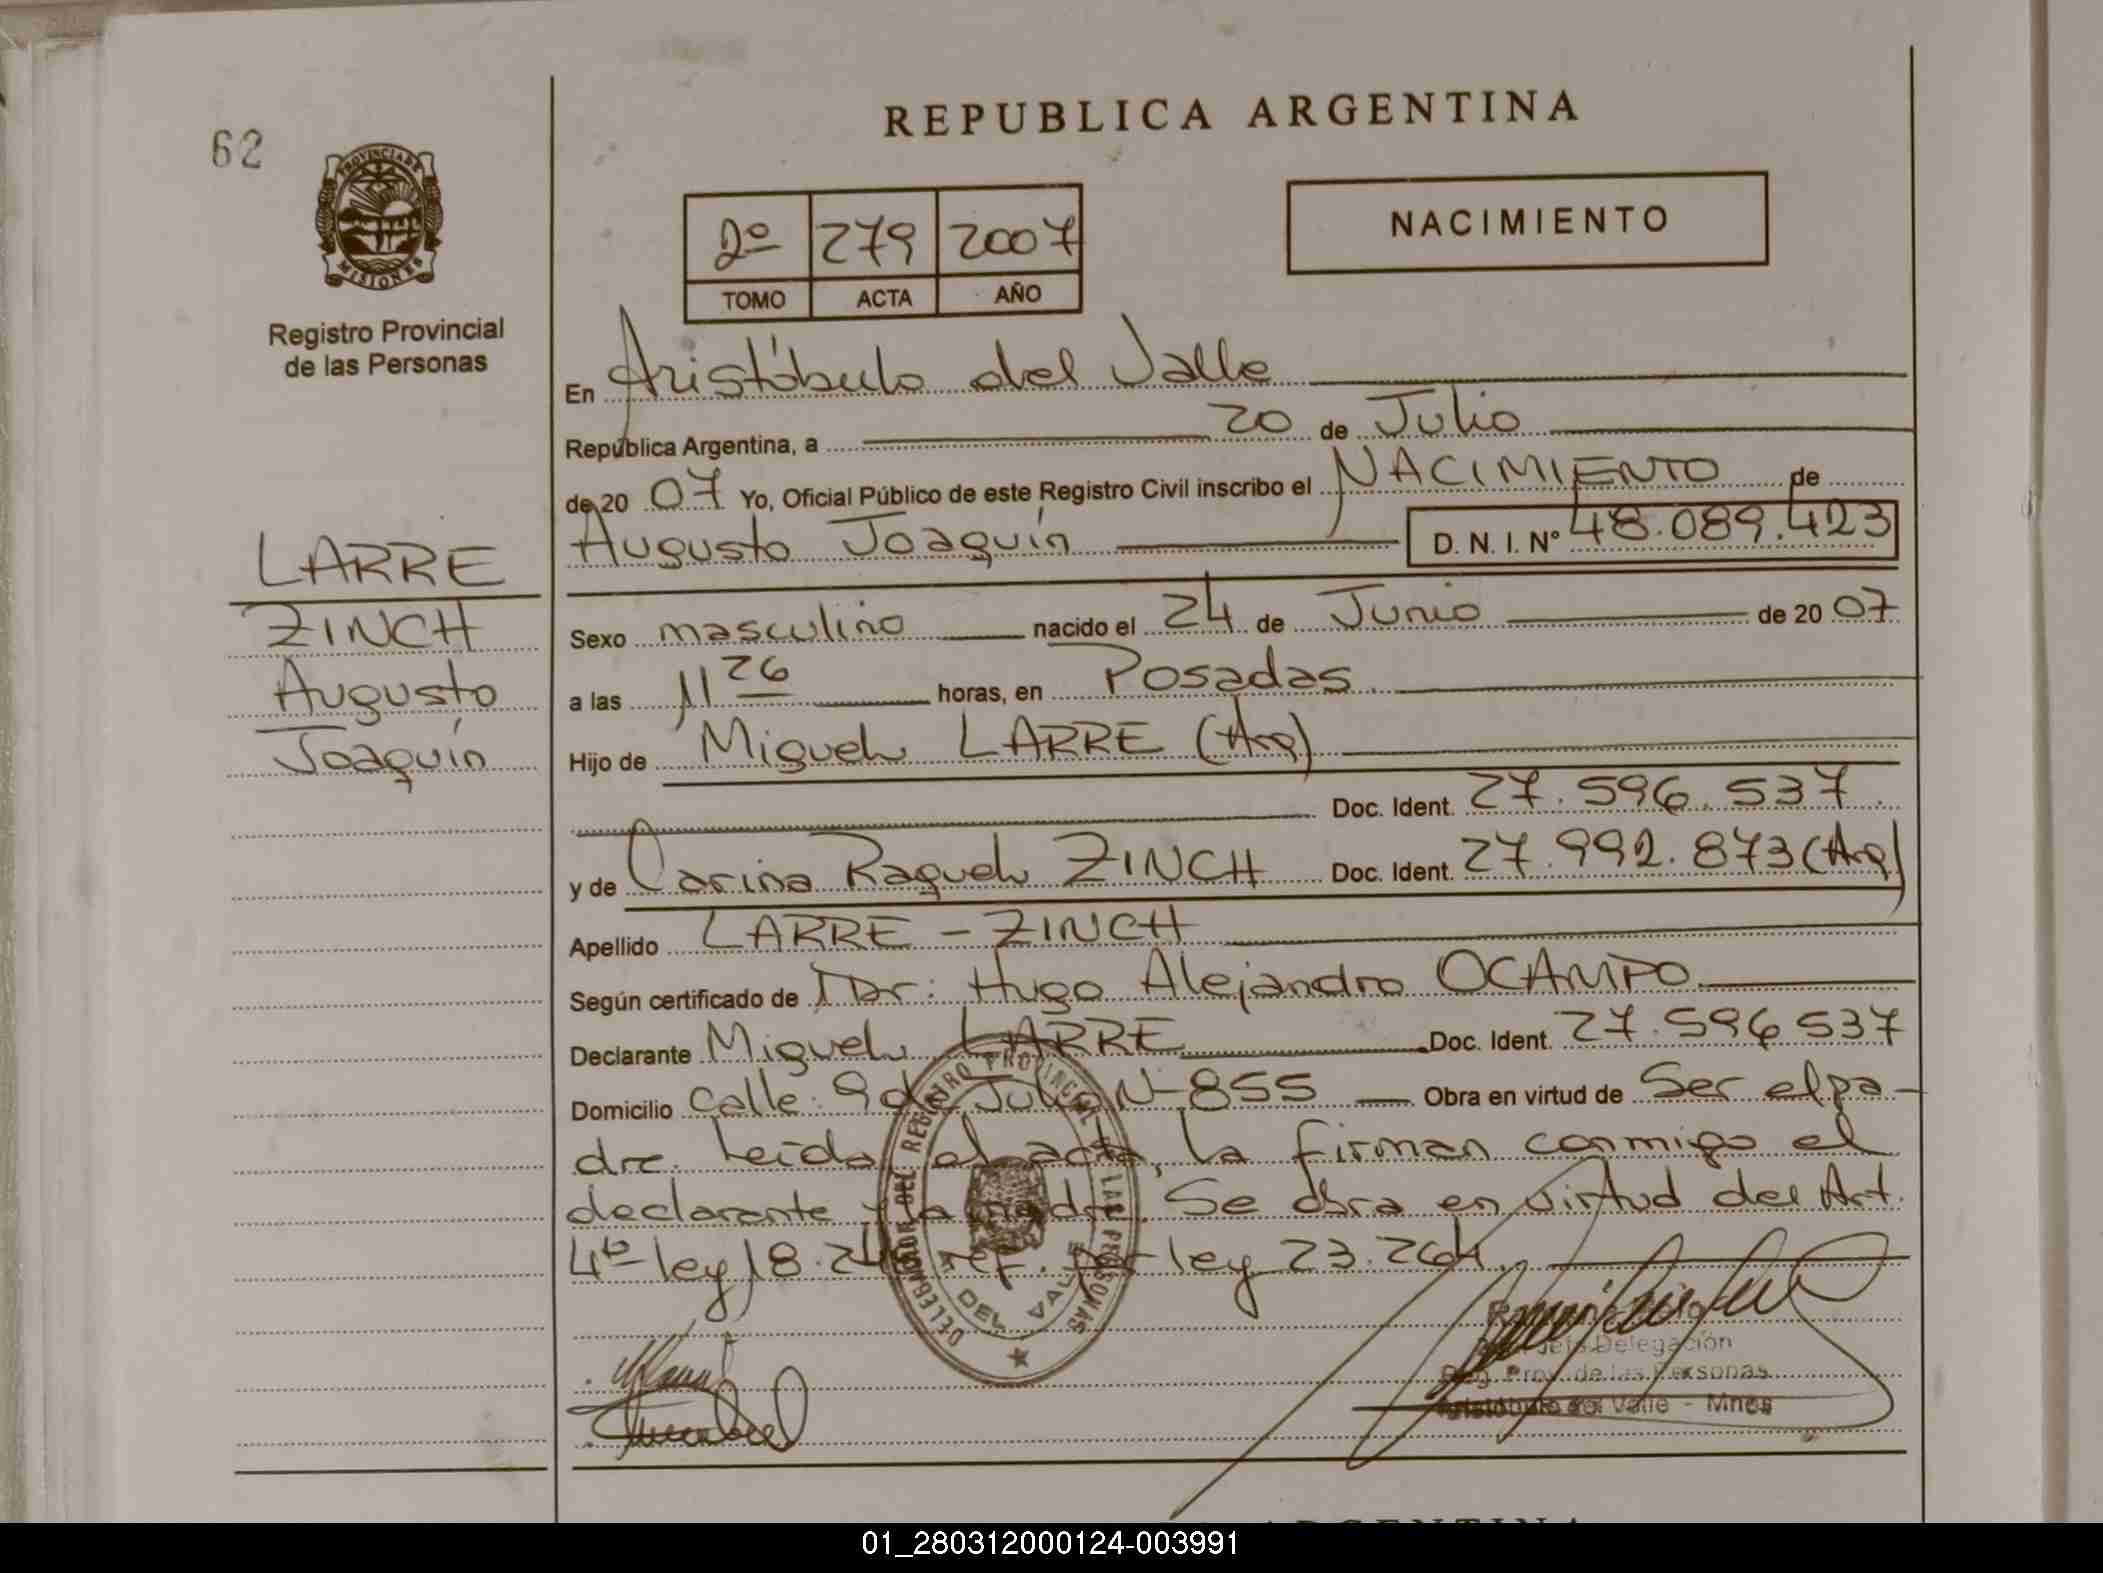 62
PROVINCIA DE
MISIONES
Registro Provincial
de las Personas
LARRE
ZINCH
Augusto
Joaquín
REPUBLICA ARGENTINA
2º 279 2007
TOMO ACTA AÑO
NACIMIENTO
En Aristóbulo del Valle
República Argentina, a 20 de Julio
de 20 07 Yo, Oficial Público de este Registro Civil inscribo el NACIMIENTO de
Augusto Joaquín D. N. I. Nº 48.089.423
Sexo masculino nacido el 24 de Junio de 20 07
a las 11 26 horas, en Posadas
Hijo de Miguel LARRE (Arg)
Doc. Ident. 27.596.537.
y de Carina Raquel ZINCH Doc. Ident. 27.992.873 (Arg)
Apellido LARRE - ZINCH
Según certificado de Dr: Hugo Alejandro OCAMPO
Declarante Miguel LARRE Doc. Ident. 27.596 537
Domicilio Calle: 9 de Julio Nº 855 Obra en virtud de Ser el pa-
dre. Leida el acta, la firman conmigo el
declarante y la madre. Se obra en virtud del Art.
4º ley 18.248 ref. por ley 23.264.
DELEGADOR DEL REGISTRO PROVINCIAL DE LAS PERSONAS
DEL VALLE
Jefe Delegación
Reg. Prov. de las Personas
Aristóbulo del Valle - Mnes
ARGENTINA
01_280312000124-003991